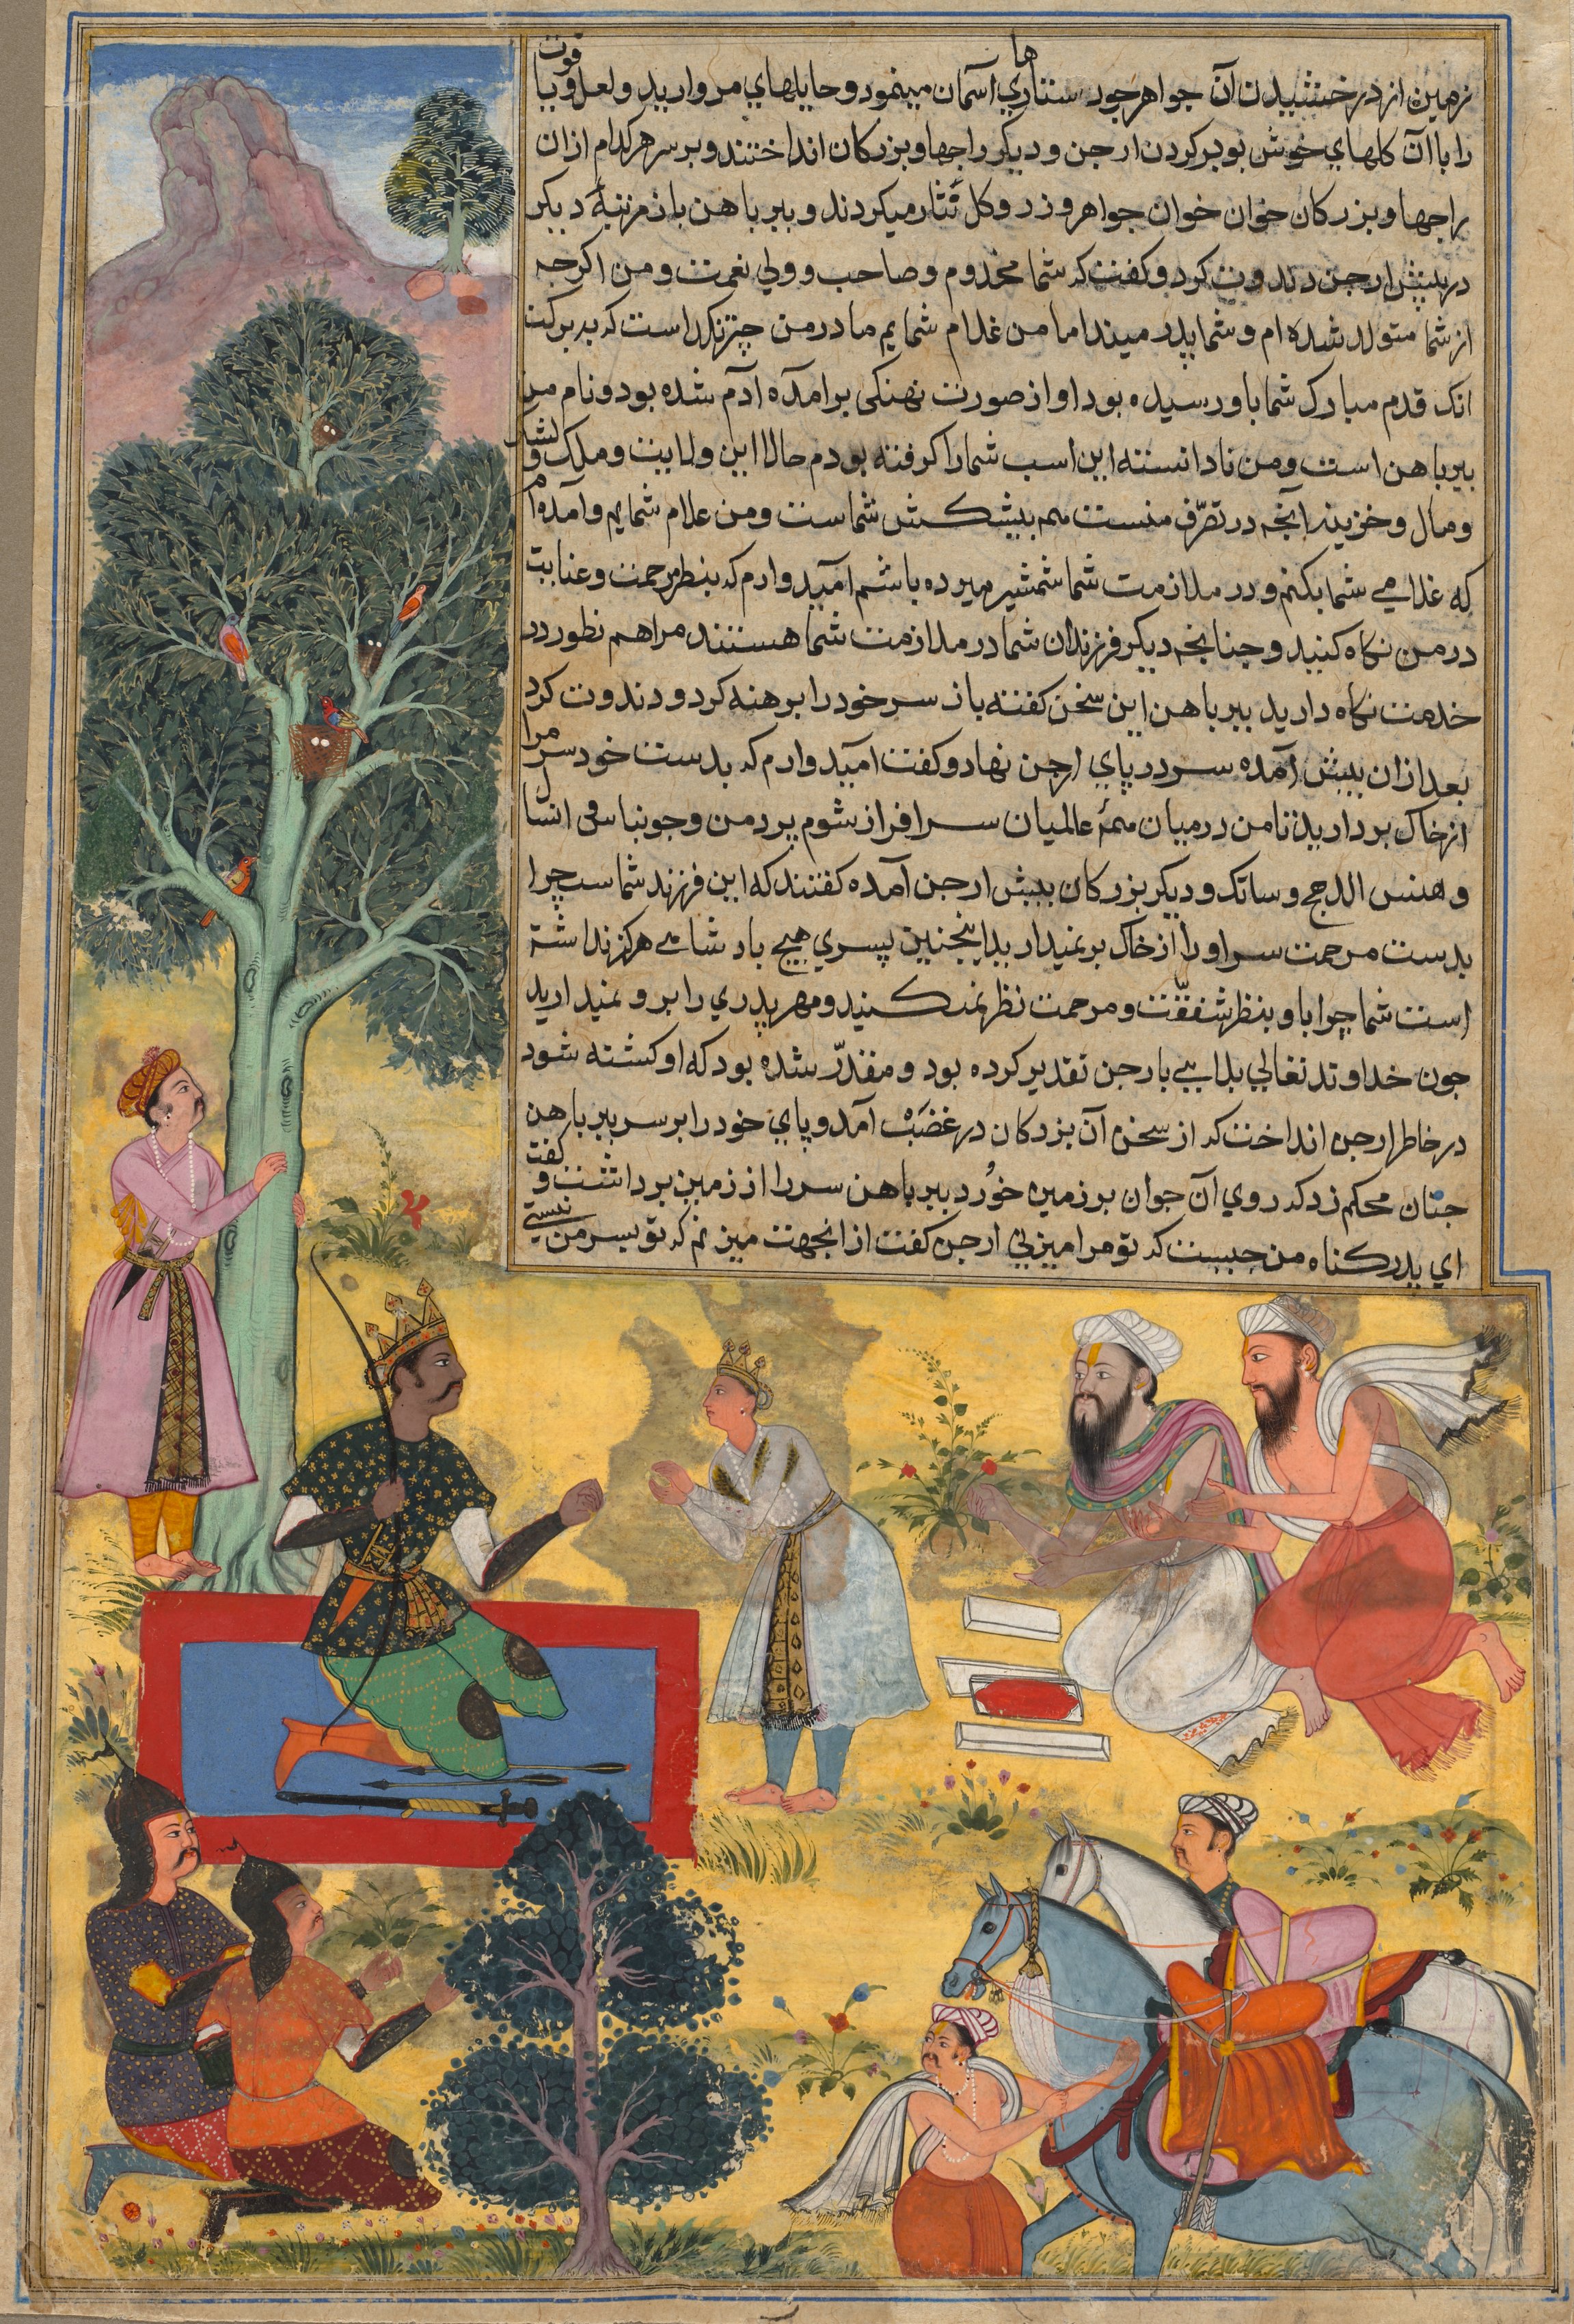 زمین از درخشیدن آن جواهر چون ستاری ها آسمان مینمود و حمایلهای مروارید و لعل و یاقوت
را با آن کلهای خوش بو بر کردن ارجن و دیکر راجها و بزرکان انداختند و بر سر هر کدام از ان
راجها و بزرکان خوان خوان جواهر و زر و کل نثار میکردند و ببر باهن باز مرتبهٔ دیکر
در پیش ارجن دندوت کرد و کفت که شما مخدوم و صاحب و ولی نعمت و من اکرچه
از شما متولد شده ام و شما پدر میند اما من غلام شمایم مادر من چترنکدا است که به برکت
انک قدم مبارک شما باو رسیده بود او از صورت نهنکی برامده آدم شده بود و نام من
ببر باهن است و من نادانسته این اسب شما را کرفته بودم حالا این ولایت و ملک و لشکر
و مال و خزینه آنچه در تصرّف منست همه پیشکش شماست و من غلام شمایم و آمده ام
که غلامی شما بکنم و در ملازمت شما شمشیر میزده باشم امیدوارم که بنظر مرحمت و عنایت
در من نکاه کنید و چنانچه دیکر فرزندان شما در ملازمت شما هستند مرا هم نطور در
خدمت نکاه دارید ببر باهن این سخن کفته باز سر خود را برهنه کرد و دندوت کرد
بعد ازان پیش آمده سر در پای ارجن نهاد و کفت امیدوارم که بدست خود سر مرا
از خاک بردارید تا من در میان همهٔ عالمیان سرافراز شوم پردمن و جوبناس و انسال
و هنس الدجج و ساتک و دیکر بزرکان پیش ارجن آمده کفتند که این فرزند شماست چرا
بدست مرحمت سر او را از خاک برنمیدارید اینچنین پسری هیچ بادشاهی هرکز نداشته
است شما چرا باو بنظر شفقّت و مرحمت نظر نمیکنید و مهر پدری را برو نمیدارید
چون خداوند تعالی بلایی بارجن تقدیر کرده بود و مقدّر شده بود که او کشته شود
در خاطر ارجن انداخت که از سخن آن بزرکان در غضب آمد و پای خود را بر سر ببر باهن
چنان محکم زد که روی آن جوان بر زمین خورد ببر باهن سر را از زمین برداشت و کفت
ای پدر کناه من چیست که تو مرا میزنی ارجن کفت از انجهت میزنم که تو پسر من نیستی